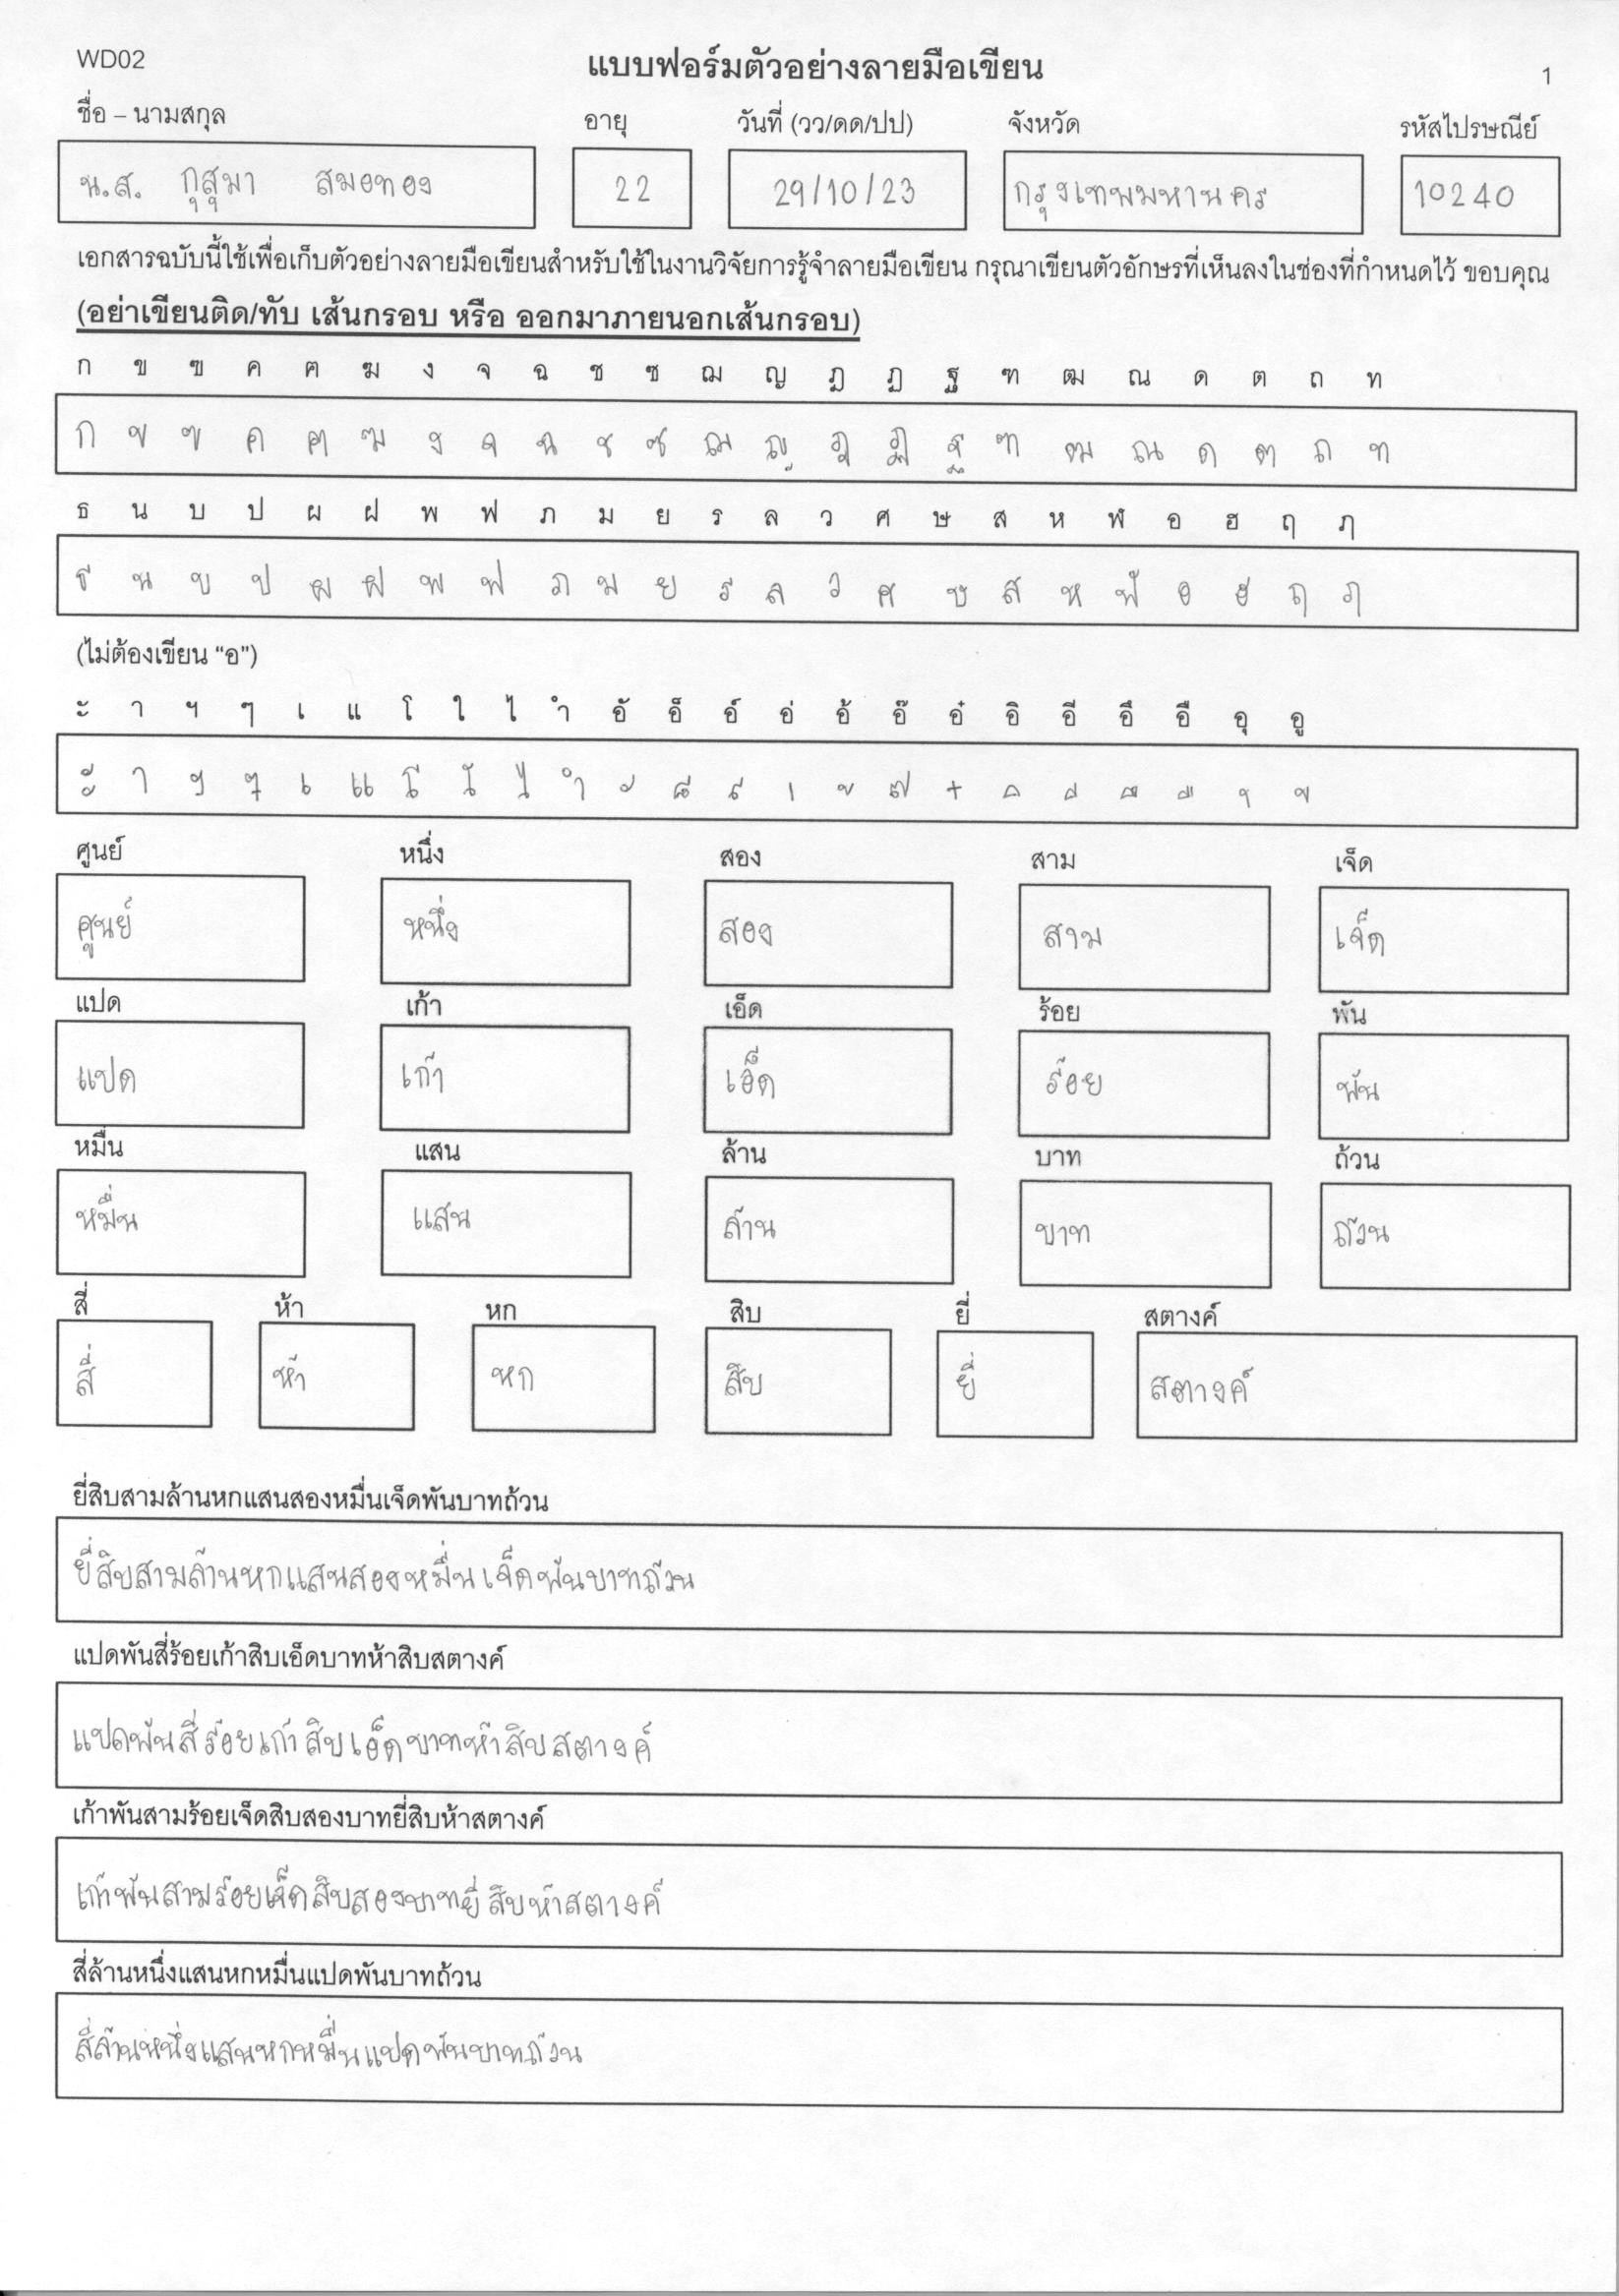 WD02
แบบฟอร์มตัวอย่างลายมือเขียน
1
ชื่อ – นามสกุล อายุ วันที่ (วว/ดด/ปป) จังหวัด รหัสไปรษณีย์
น.ส. กุสุมา สมอทอง 22 29/10/23 กรุงเทพมหานคร 10240
เอกสารฉบับนี้ใช้เพื่อเก็บตัวอย่างลายมือเขียนสำหรับใช้ในงานวิจัยการรู้จำลายมือเขียน กรุณาเขียนตัวอักษรที่เห็นลงในช่องที่กำหนดไว้ ขอบคุณ
(อย่าเขียนติด/ทับ เส้นกรอบ หรือ ออกมาภายนอกเส้นกรอบ)
ก ข ฃ ค ฅ ฆ ง จ ฉ ช ซ ฌ ญ ฎ ฏ ฐ ฑ ฒ ณ ด ต ถ ท
ก ข ฃ ค ฅ ฆ ง จ ฉ ช ซ ฌ ญ ฎ ฏ ฐ ฑ ฒ ณ ด ต ถ ท
ธ น บ ป ผ ฝ พ ฟ ภ ม ย ร ล ว ศ ษ ส ห ฬ อ ฮ ฤ ฦ
ธ น บ ป ผ ฝ พ ฟ ภ ม ย ร ล ว ศ ษ ส ห ฬ อ ฮ ฤ ฦ
(ไม่ต้องเขียน “อ”)
ะ า ฯ ๆ เ แ โ ใ ไ ำ อั อ็ อ์ อ่ อ้ อ๊ อ๋ อิ อี อึ อื อุ อู
ะ า ฯ ๆ เ แ โ ใ ไ ำ ั ็ ์ ่ ้ ๊ ๋ ิ ี ึ ื ุ ู
ศูนย์ หนึ่ง สอง สาม เจ็ด
ศูนย์ หนึ่ง สอง สาม เจ็ด
แปด เก้า เอ็ด ร้อย พัน
แปด เก้า เอ็ด ร้อย พัน
หมื่น แสน ล้าน บาท ถ้วน
หมื่น แสน ล้าน บาท ถ้วน
สี่ ห้า หก สิบ ยี่ สตางค์
สี่ ห้า หก สิบ ยี่ สตางค์
ยี่สิบสามล้านหกแสนสองหมื่นเจ็ดพันบาทถ้วน
ยี่สิบสามล้านหกแสนสองหมื่นเจ็ดพันบาทถ้วน
แปดพันสี่ร้อยเก้าสิบเอ็ดบาทห้าสิบสตางค์
แปดพันสี่ร้อยเก้าสิบเอ็ดบาทห้าสิบสตางค์
เก้าพันสามร้อยเจ็ดสิบสองบาทยี่สิบห้าสตางค์
เก้าพันสามร้อยเจ็ดสิบสองบาทยี่สิบห้าสตางค์
สี่ล้านหนึ่งแสนหกหมื่นแปดพันบาทถ้วน
สี่ล้านหนึ่งแสนหกหมื่นแปดพันบาทถ้วน